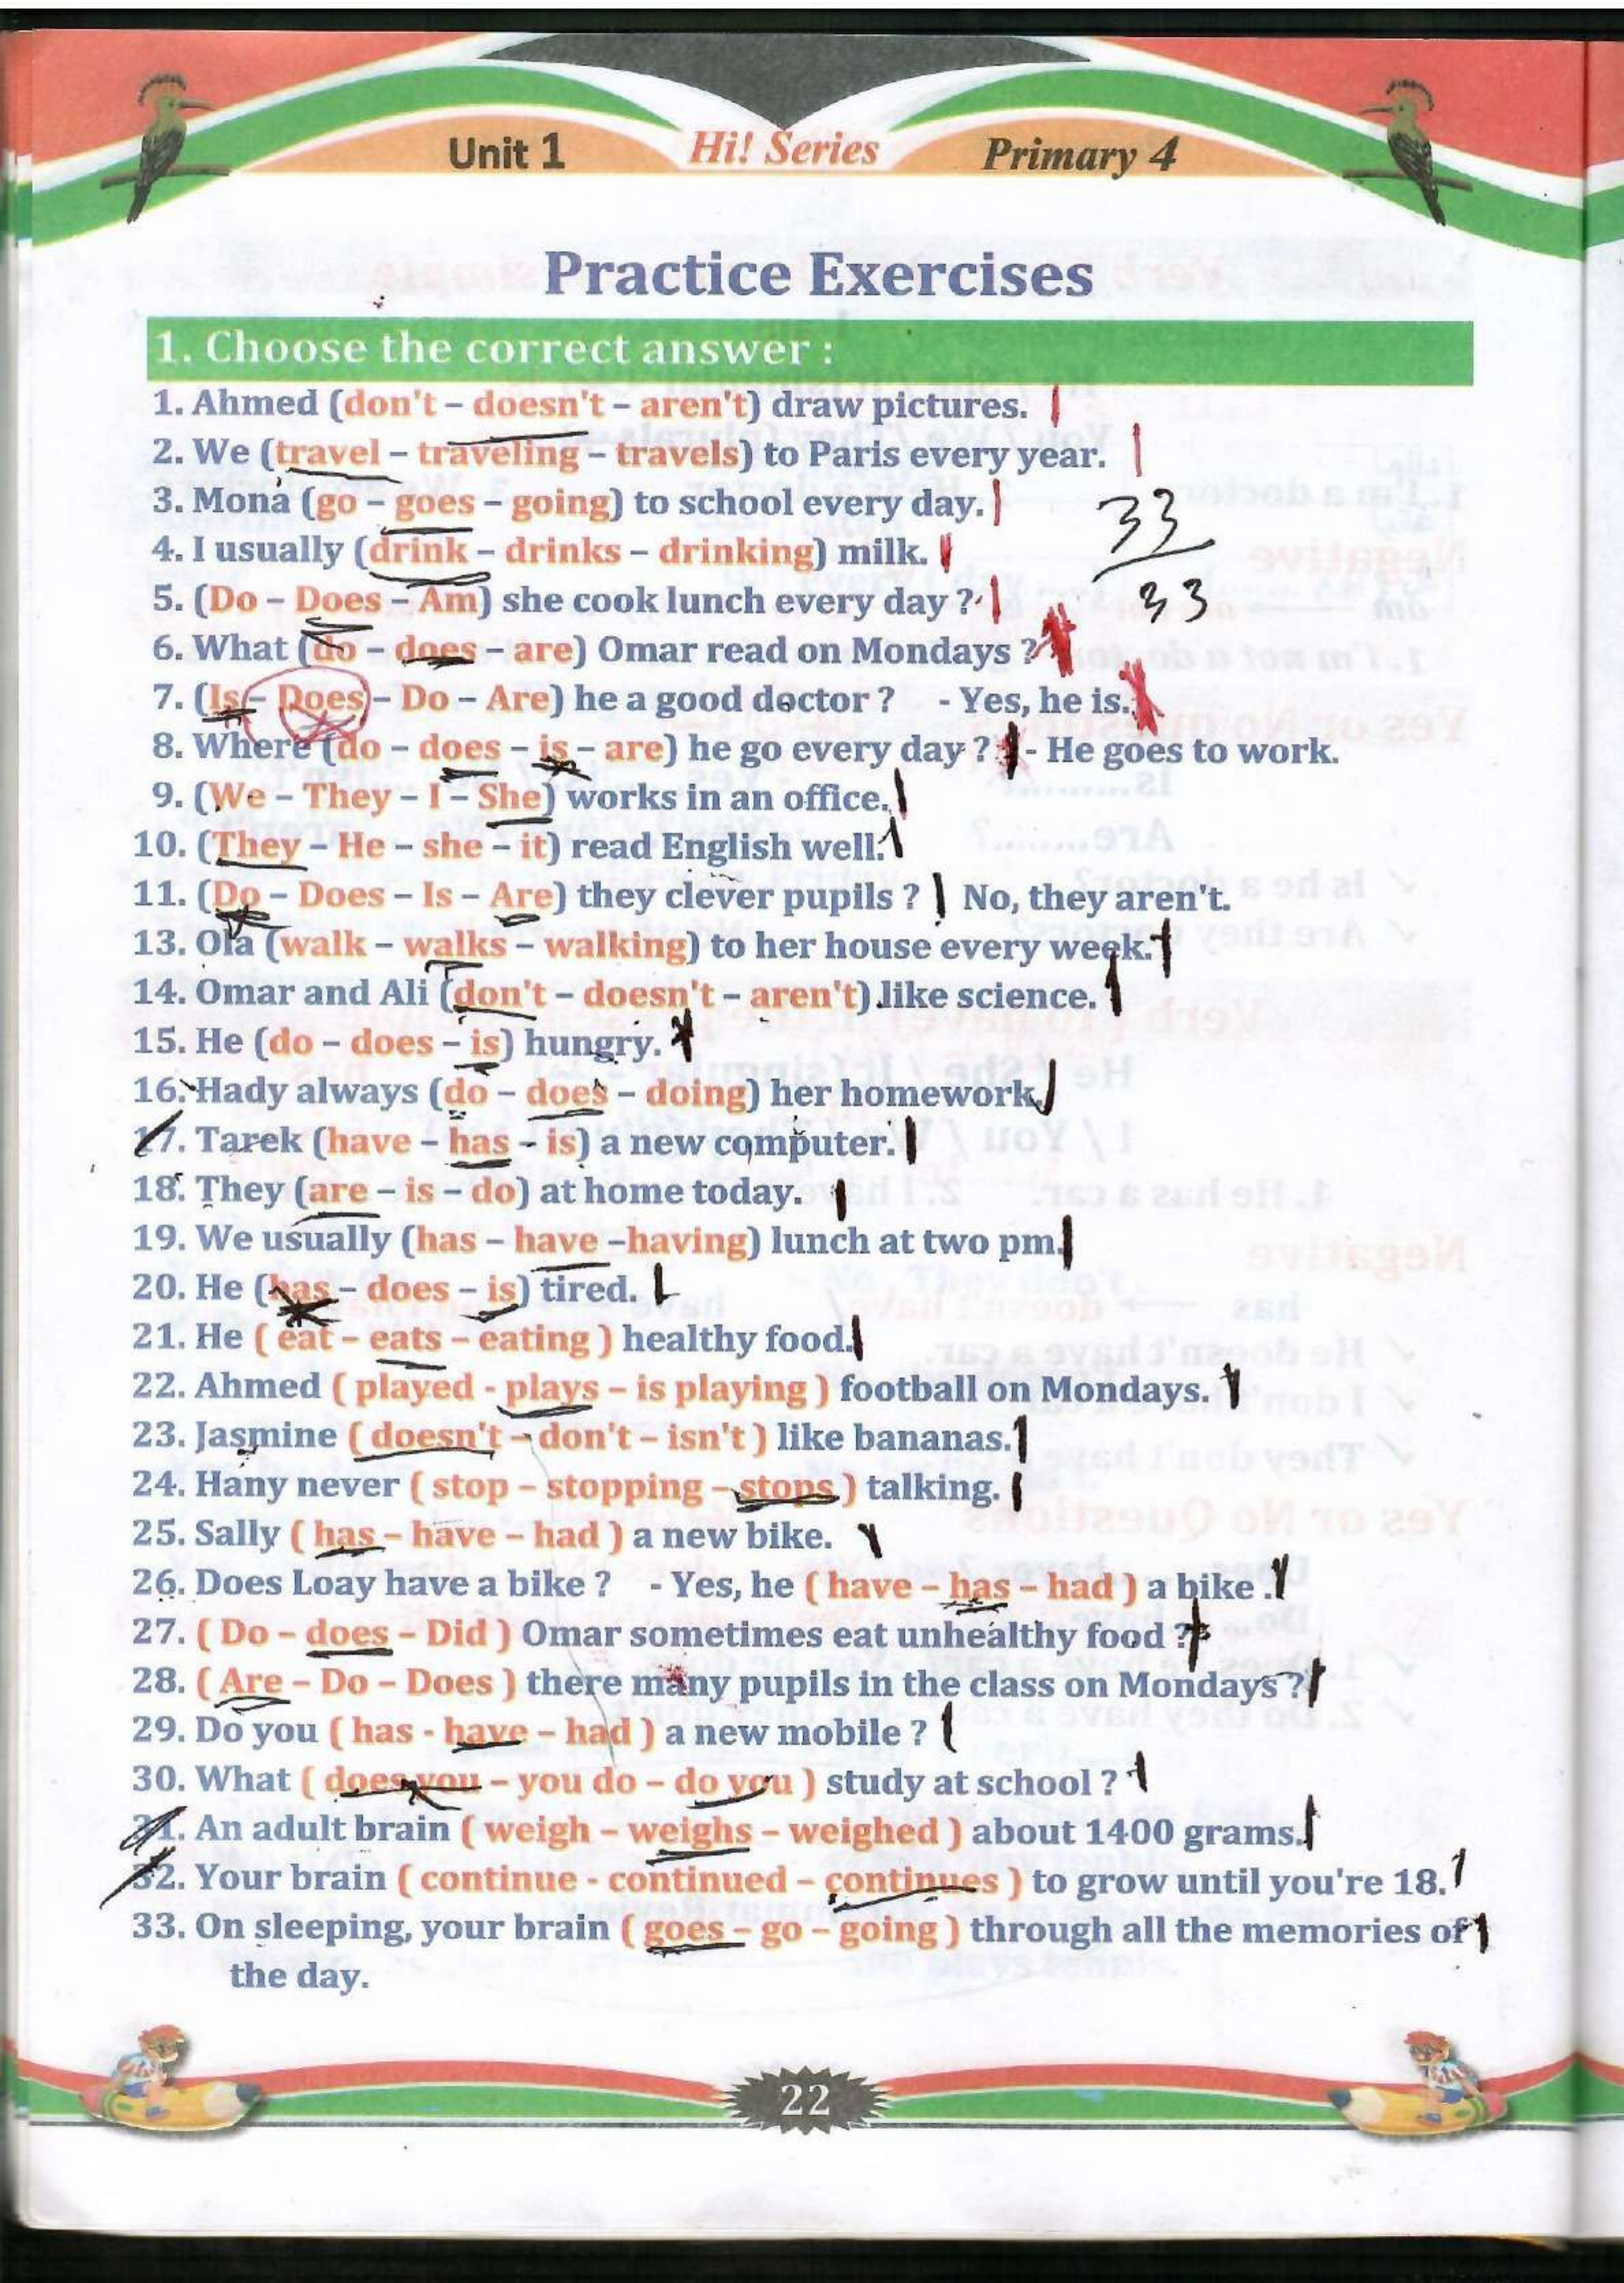 Unit 1 Hi! Series Primary 4
Practice Exercises
1. Choose the correct answer :
1. Ahmed (don't – doesn't – aren't) draw pictures.
2. We (travel – traveling – travels) to Paris every year.
3. Mona (go – goes – going) to school every day.
33
4. I usually (drink – drinks – drinking) milk.
5. (Do – Does – Am) she cook lunch every day ?
33
6. What (do – does – are) Omar read on Mondays ?
7. (Is – Does – Do – Are) he a good doctor ? - Yes, he is.
8. Where (do – does – is – are) he go every day ? - He goes to work.
9. (We – They – I – She) works in an office.
10. (They – He – she – it) read English well.
11. (Do – Does – Is – Are) they clever pupils ? No, they aren't.
13. Ola (walk – walks – walking) to her house every week.
14. Omar and Ali (don't – doesn't – aren't) like science.
15. He (do – does – is) hungry.
16. Hady always (do – does – doing) her homework.
17. Tarek (have – has – is) a new computer.
18. They (are – is – do) at home today.
19. We usually (has – have –having) lunch at two pm.
20. He (has – does – is) tired.
21. He ( eat – eats – eating ) healthy food.
22. Ahmed ( played - plays – is playing ) football on Mondays.
23. Jasmine ( doesn't – don't – isn't ) like bananas.
24. Hany never ( stop – stopping – stops ) talking.
25. Sally ( has – have – had ) a new bike.
26. Does Loay have a bike ? - Yes, he ( have – has – had ) a bike .
27. ( Do – does – Did ) Omar sometimes eat unhealthy food ?
28. ( Are – Do – Does ) there many pupils in the class on Mondays ?
29. Do you ( has - have – had ) a new mobile ?
30. What ( does you – you do – do you ) study at school ?
31. An adult brain ( weigh – weighs – weighed ) about 1400 grams.
32. Your brain ( continue - continued – continues ) to grow until you're 18.
33. On sleeping, your brain ( goes – go – going ) through all the memories of
the day.
22